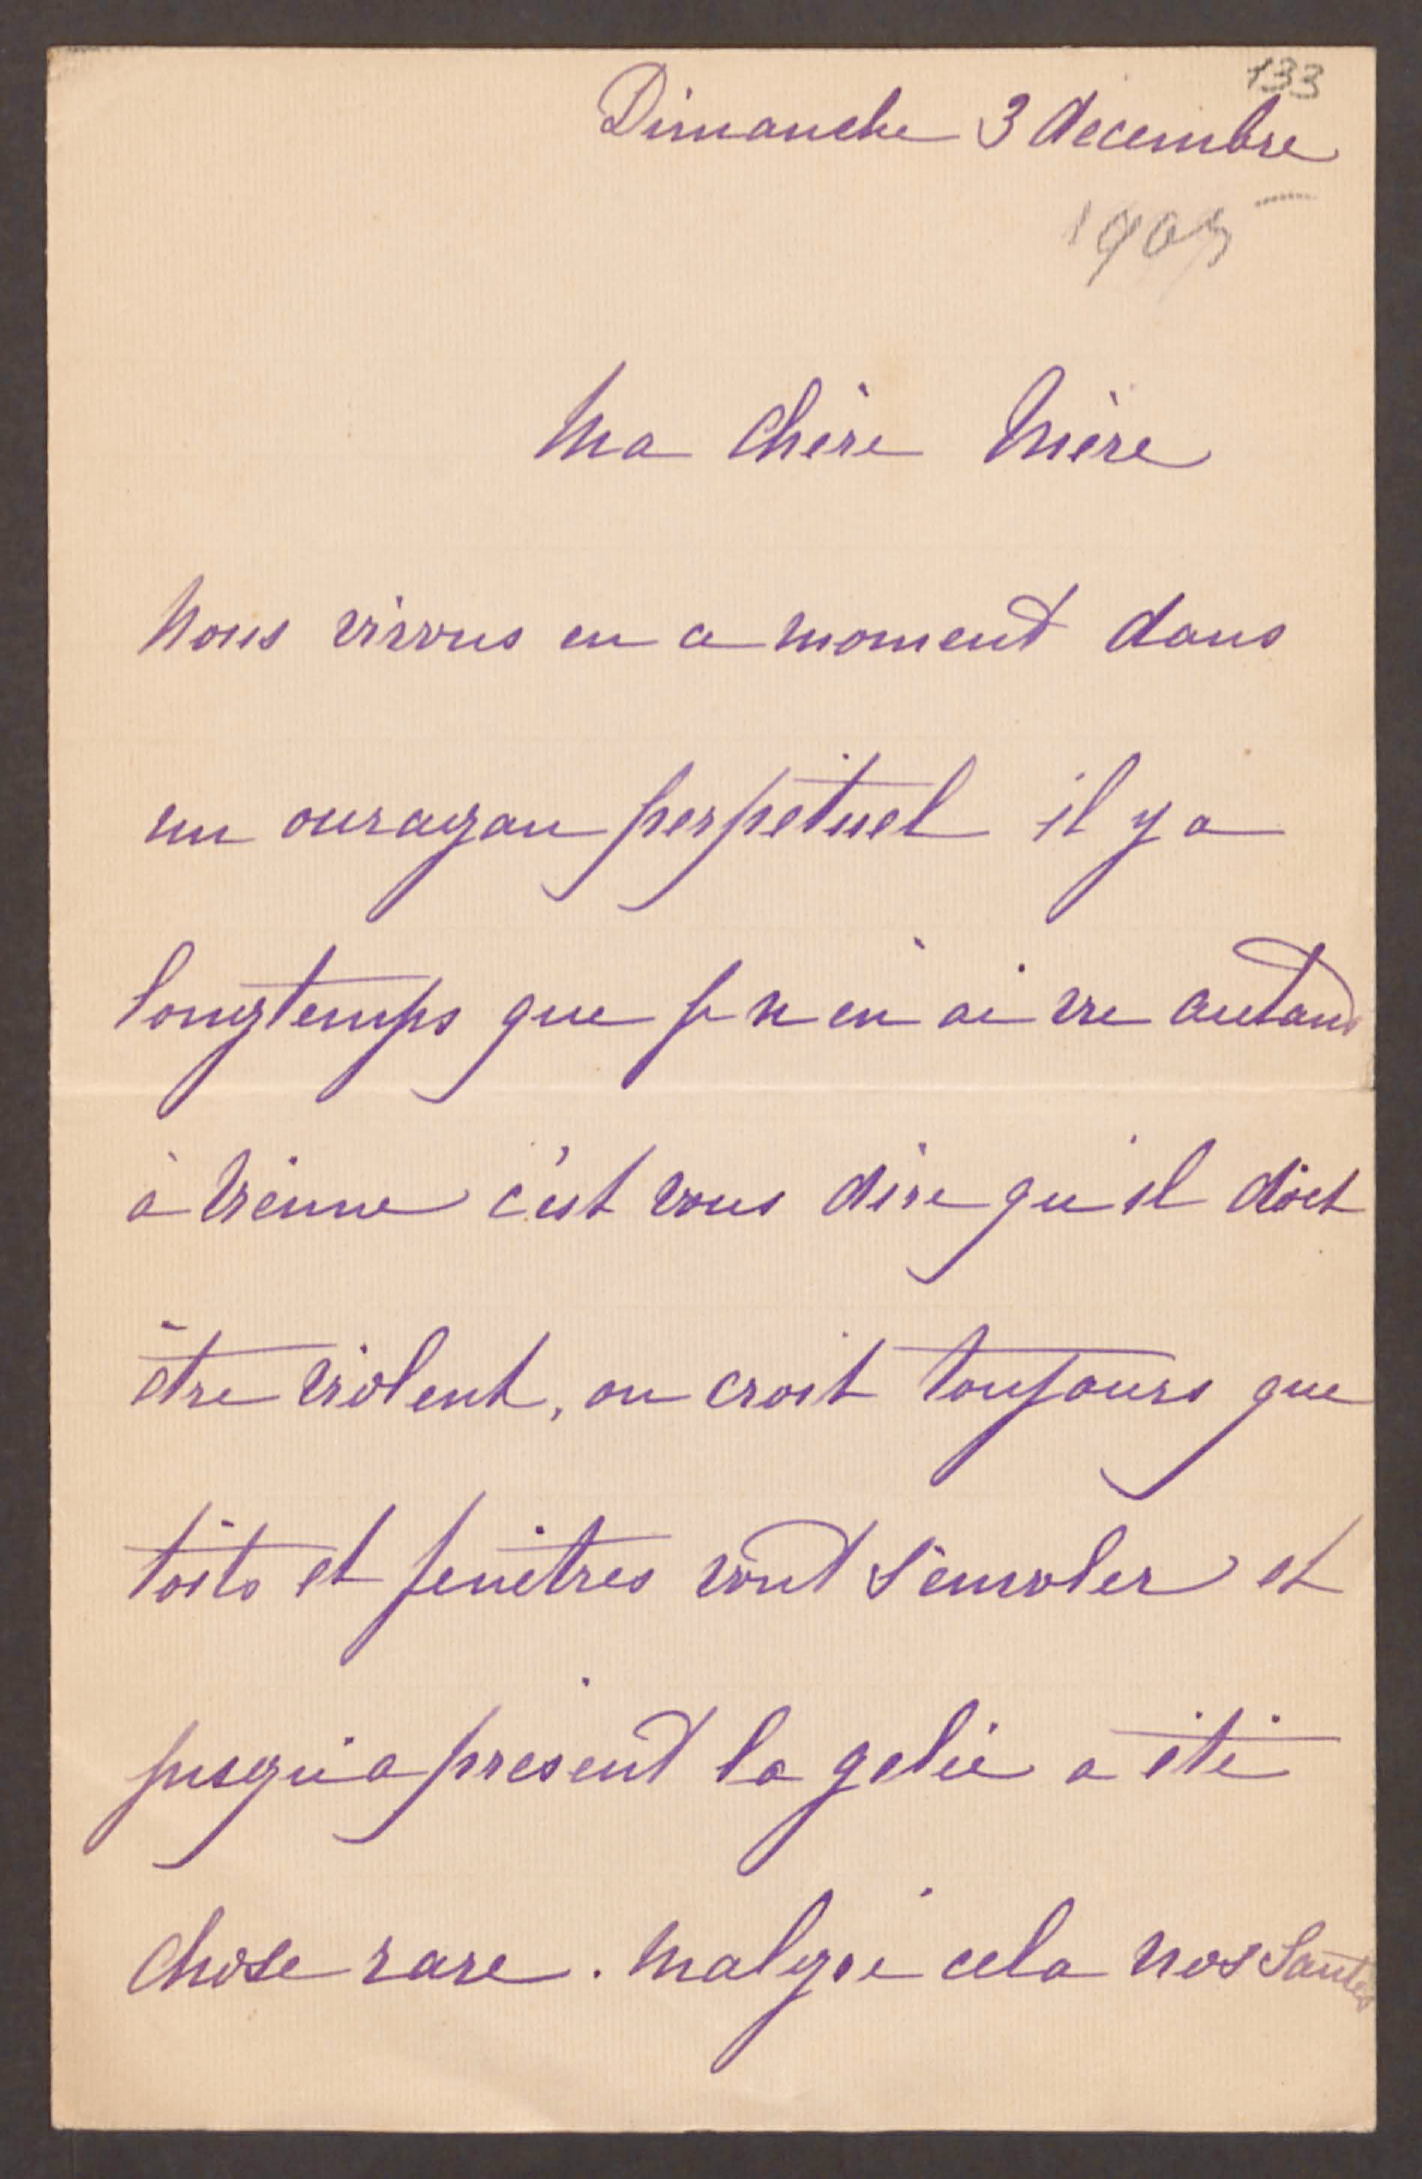 133
Dimanche 3 decembre
1905
Ma chère Mère
Nous vivons en ce moment dans
un ouragan perpetuel il y a
longtemps que je n'en ai vu autant
à Vienne c'est vous dire qu'il doit
être violent, on croit toujours que
toits et fenêtres vont s'envoler et
jusqu'à présent la gelée a été
chose rare. Malgré cela nos santés